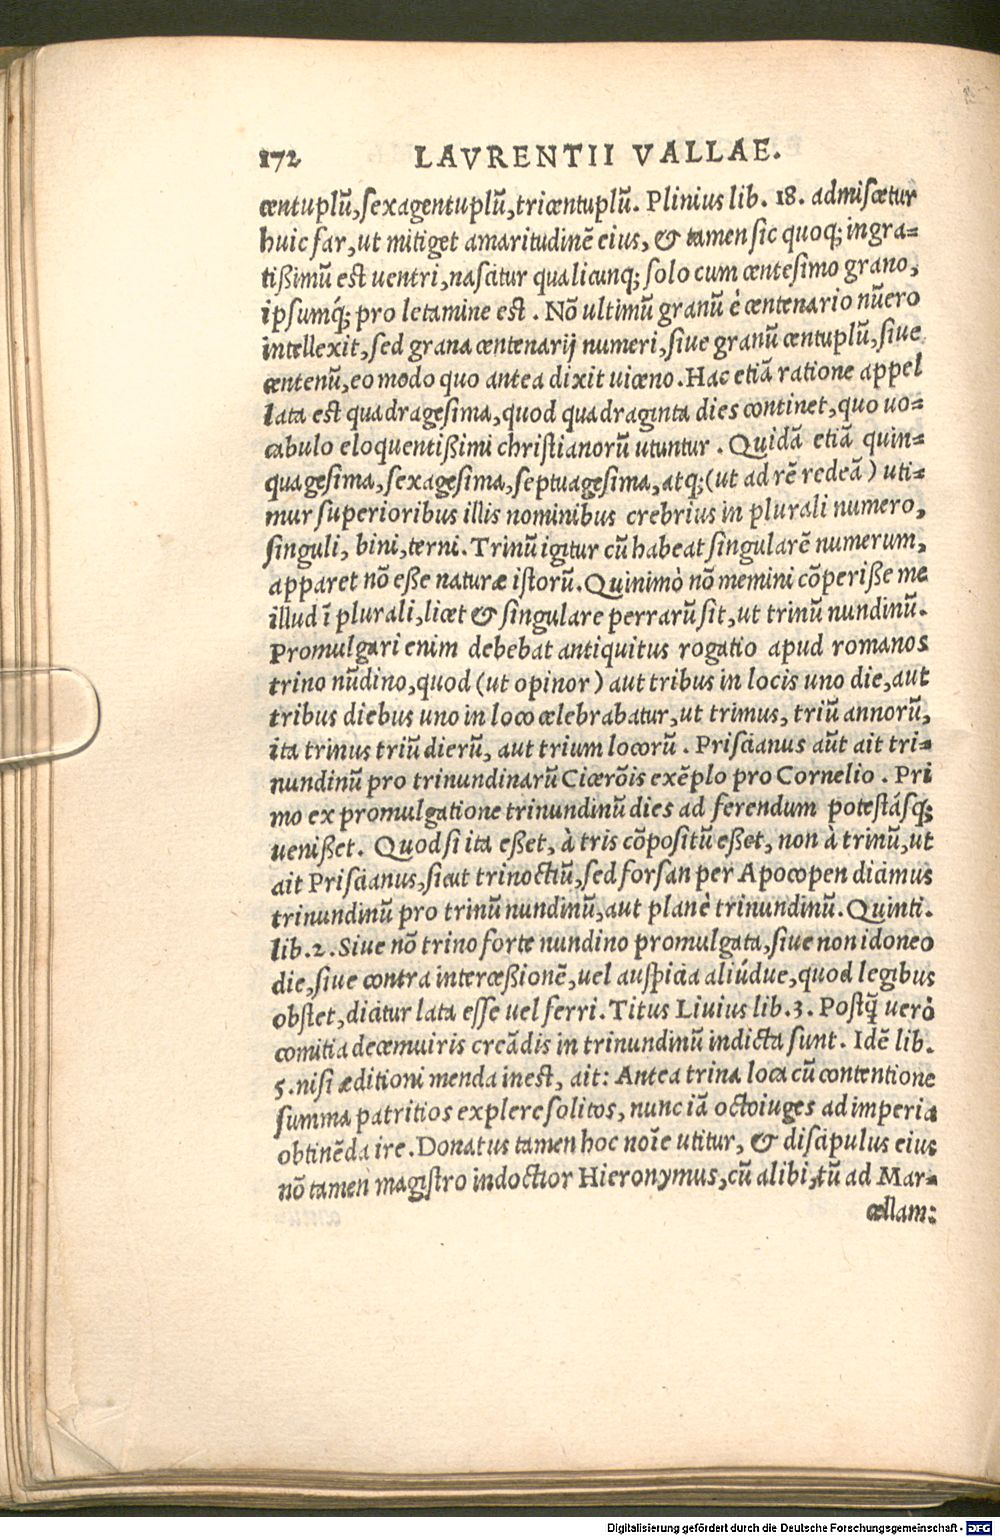 172 LAVRENTII VALLAE.
centuplũ, sexagentuplũ, tricentuplũ. Plinius lib. 18. admiscetur
huic far, ut mitiget amaritudinẽ eius, & tamen sic quoq; ingra=
tißimũ est uentri, nascitur qualicunq; solo cum centesimo grano,
ipsumq́; pro letamine est. Nõ ultimũ granũ è centenario nũero
intellexit, sed grana centenarij numeri, siue granũ centuplũ, siue
centenũ, eo modo quo antea dixit uiceno. Hac etiã ratione appel
lata est quadragesima, quod quadraginta dies continet, quo uo=
cabulo eloquentißimi christianorũ utuntur. Quidã etiã quin=
quagesima, sexagesima, septuagesima, atq; (ut ad rẽ redeã) uti=
mur superioribus illis nominibus crebrius in plurali numero,
singuli, bini, terni. Trinũ igitur cũ habeat singularẽ numerum,
apparet nõ eße naturæ istorũ. Quinimò nõ memini cõperiße me
illud ĩ plurali, licet & singulare perrarũ sit, ut trinũ nundinũ.
Promulgari enim debebat antiquitus rogatio apud romanos
trino nũdino, quod (ut opinor) aut tribus in locis uno die, aut
tribus diebus uno in loco celebrabatur, ut trimus, triũ annorũ,
ita trinus triũ dierũ, aut trium locorũ. Priscianus aũt ait tri=
nundinũ pro trinundinarũ Cicerõis exẽplo pro Cornelio. Pri
mo ex promulgatione trinundinũ dies ad ferendum potestásq;
uenißet. Quod si ita eßet, à tris cõpositũ eßet, non à trinũ, ut
ait Priscianus, sicut trinoctiũ, sed forsan per Apocopen dicimus
trinundinũ pro trinũ nundinũ, aut planè trinundinũ. Quinti.
lib. 2. Siue nõ trino forte nundino promulgata, siue non idoneo
die, siue contra interceßionẽ, uel auspicia aliúdue, quod legibus
obstet, dicitur lata esse uel ferri. Titus Liuius lib. 3. Postq̃ uerò
comitia decemuiris creãdis in trinundinũ indicta sunt. Idẽ lib.
5. nisi æditioni menda inest, ait: Antea trina loca cũ contentione
summa patritios explere solitos, nunc iã octoiuges ad imperia
obtinẽda ire. Donatus tamen hoc noĩe utitur, & discipulus eius
nõ tamen magistro indoctior Hieronymus, cũ alibi, tũ ad Mar=
cellam:
Digitalisierung gefördert durch die Deutsche Forschungsgemeinschaft - DFG